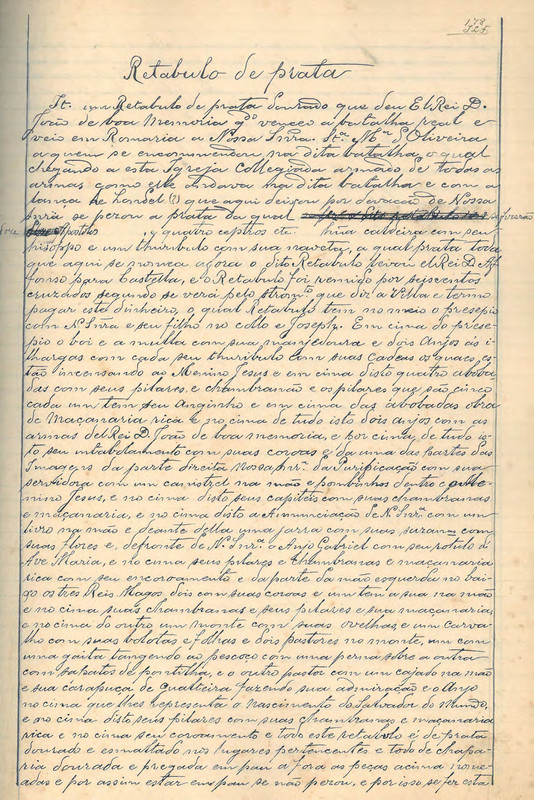 178
Retabulo de prata
It. um Retabulo de prata dourado que deu El Rei D.
João de boa Memoria qdo venceo a batalha real e
veio em Romaria a Nossa Snra. Sta. Ma. d'Oliveira
a quem se encommendou na dita batalha, o qual
chegando a esta Igreja Collegiada armado de todas as
armas como elle andava na dita batalha e com a
lança de (?) que aqui deixou por devação de Nossa
Snra se pezou a prata da qual
Apostolos, y quatro ceptros etc. hũa caldeira com seu
hisoppo e um thuribulo com sua naveta, a qual prata toda
que aqui se nomea agora o dito Retabulo levou el Rei D. Af
fonso para Castella, e o Retabulo foi remido por seiscentos
cruzados segundo se verá pelo que diz a Villa e termo
pagar este dinheiro, o qual Retabulo tem no meio o presepio
com N. Snra e seu filho no collo e Joseph. Em cima do prese-
pio o boi e a mulla com sua manjedoura e dois Anjos ás i-
lhargas com cada seu thuribulo com suas cadeas os quaes es-
tão incensando ao Menino Jesus e em cima disto quatro aboba
das com seus pilares, e chambranão e os pilares que são cinco
cada um tem seu Anginho e em cima das abobadas obra
de Maçanaria rica e no cima de tudo isto dois Anjos com as
armas del Rei D. João de boa memoria, e por cima de tudo is-
to seu intabolamento com suas coroas e da uma das partes das
Imagens da parte direita Nossa Snra. da Purificação com sua
servidora com um canistrel na mão e pombinhos dentro e o Me-
nino Jesus, e no cima disto seus capiteis com suas chambranas
e maçanaria, e no cima disto a Annunciação de N. Snra. com um
livro na mão e deante della uma jarra com suas com
suas flores e, defronte de N. Snra. o Anjo Gabriel com seu rotulo d'
Ave Maria, e no cima seus pilares e chambranas e maçanaria
rica com seu encoroamento e da parte da mão esquerda no bai-
xo os tres Reis Magos, dois com suas coroas e um tem a sua na mão
e no cima suas chambranas e seus pilares e sua maçanaria,
e no cima do outro um monte com suas ovelhas e um carva-
lho com suas bolotas e folhas e dois pastores no monte, um com
uma gaita tangendo ao pescoço com uma perna sobre a outra
com sapatos de pontilha, e o outro pastor com um cajado na mão
e sua carapuça de Quarteirã fazendo sua admiração e o Anjo
no cima que lhes representa o Nascimento do Salvador do Mundo,
e no cima disto seus pilares com suas chambranas e maçanaria
rica e no cima seu coroamento e todo este retabolo é de prata
dourado e esmaltado nos lugares pertencentes e todo de chapa-
ria dourada e pregada em pau a fora as peças acima nome-
adas e por assim estar em pau se não pezou, e por isso se fez esta